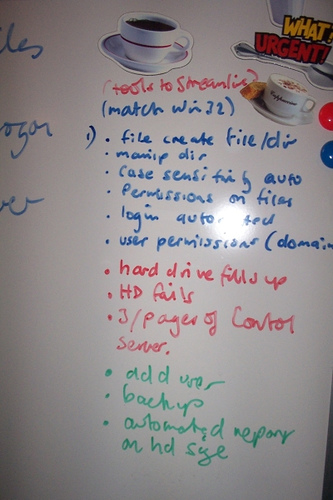 WHAT!
URGENT!
Cappuccino
(tools to Streamline)
(match win 32)
iles
1) • file create file/dir
• manip dir
• Case sensitivity auto
• Permissions on files
• login automated
• user permissions (domain
• hard drive fills up
• HD fails
• 3/pager of Control
server.
• add user
• backup
• automated report
on hd size